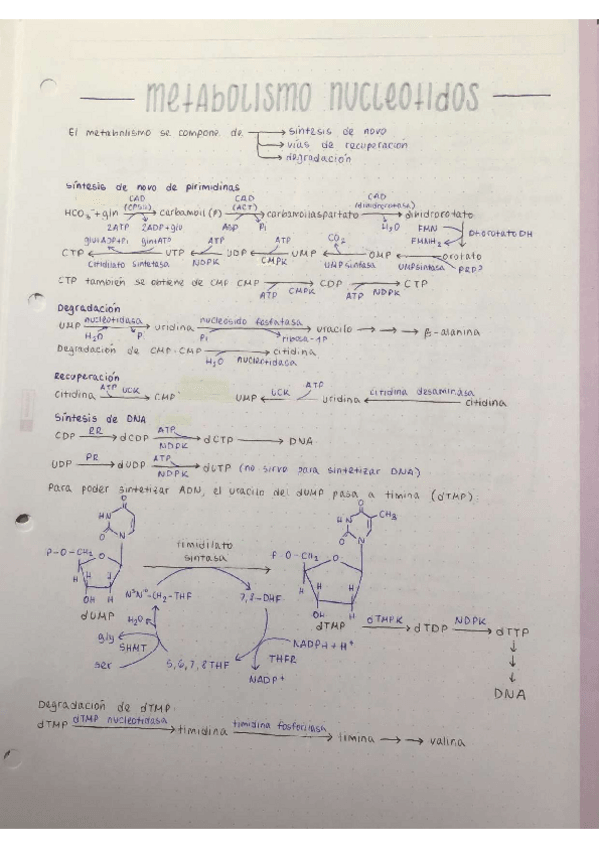 metabolismo nucleotidos
El metabolismo se compone de → síntesis de novo
→ vías de recuperación
→ degradación
Síntesis de novo de pirimidinas
CAD CAD CAD
(CPSII) (ACT) (dihidrorotasa)
HCO3⁻ + gln → carbamoil (P) → carbamoilaspartato → dihidrorotato
2ATP 2ADP+glu Asp Pi H2O FMN
FMNH2 Dhorotato DH
glu+ADP+Pi gln+ATP ATP ATP CO2
CTP ← UTP ← UDP ← UMP ← OMP ← orotato
Citidilato sintetasa NDPK CMPK UMPsintasa UMPsintasa PRPP
CTP también se obtiene de CMP CMP → CDP → CTP
ATP CMPK ATP NDPK
Degradación
UMP nucleotidasa → uridina nucleosido fosfatasa → uracilo → → → β-alanina
H2O P Pi ribosa-1P
Degradación de CMP: CMP → citidina
H2O nucleotidasa
Recuperación
Citidina ATP UCK → CMP UMP ← UCK ATP uridina ← citidina desaminasa citidina
Síntesis de DNA
CDP RR → dCDP ATP NDPK → dCTP → DNA
UDP RR → dUDP ATP NDPK → dUTP (no sirve para sintetizar DNA).
Para poder sintetizar ADN, el uracilo del dUMP pasa a timina (dTMP):
O HN O N
P-O-CH2 O H H H OH H
dUMP
timidilato
sintasa
O HN CH3 O N
P O-CH2 O H H H OH H
dTMP
N5N10-CH2-THF 7,8-DHF
H2O
gly
SHMT
ser
5,6,7,8 THF
NADPH + H+
THFR
NADP+
dTMP dTMPK → dTDP NDPK → dTTP
DNA
Degradación de dTMP:
dTMP dTMP nucleotidasa → timidina timidina fosforilasa → timina → → valina